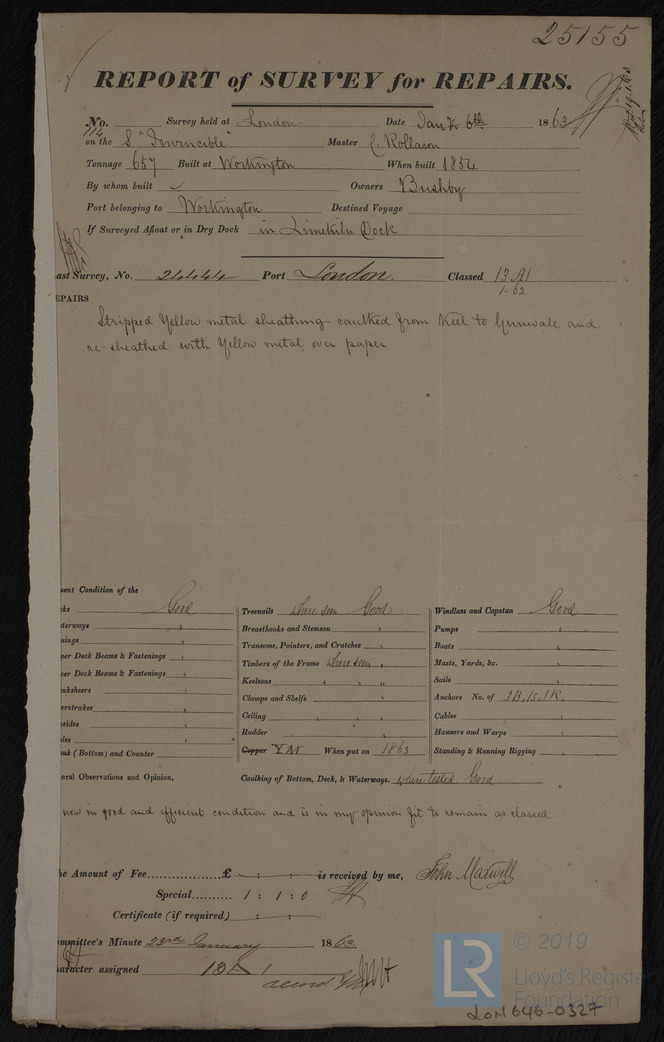 25155
REPORT of SURVEY for REPAIRS.
No. 114 Survey held at London Date Jany 6th 1863
on the S "Invincible" Master C. Rollason
Tonnage 657 Built at Workington When built 1854
By whom built Owners Bushby
Port belonging to Workington Destined Voyage
If Surveyed Afloat or in Dry Dock in Limekiln Dock
ast Survey, No. 24444 Port London. Classed 13 A1
1.62
EPAIRS
Stripped Yellow metal sheathing caulked from Keel to Gunwale and
re-sheathed with Yellow metal over paper
sent Condition of the
cks Good Treenails where seen Good Windlass and Capstan Good
terways " Breasthooks and Stemson " Pumps "
nings " Transoms, Pointers, and Crutches " Boats "
per Deck Beams & Fastenings " Timbers of the Frame where seen " Masts, Yards, &c. "
er Deck Beams & Fastenings " Keelsons " " " Sails "
nksheers " Clamps and Shelfs " Anchors No. of 3B, 1S, 1K.
erstrakes " Ceiling " " " Cables "
sides " Rudder " Hawsers and Warps "
des " Copper YM When put on 1863 Standing & Running Rigging "
nk (Bottom) and Counter "
eral Observations and Opinion, Caulking of Bottom, Deck, & Waterways. where tested Good
now in good and efficient condition and is in my opinion fit to remain as classed
he Amount of Fee..................£ : : is received by me, John Maxwell
Special.......... 1 : 1 : 0
Certificate (if required) : :
mmittee's Minute 23rd January 1863.
aracter assigned 13 A 1
© 2019
LR
Lloyd's Register
Foundation
LON646-0327